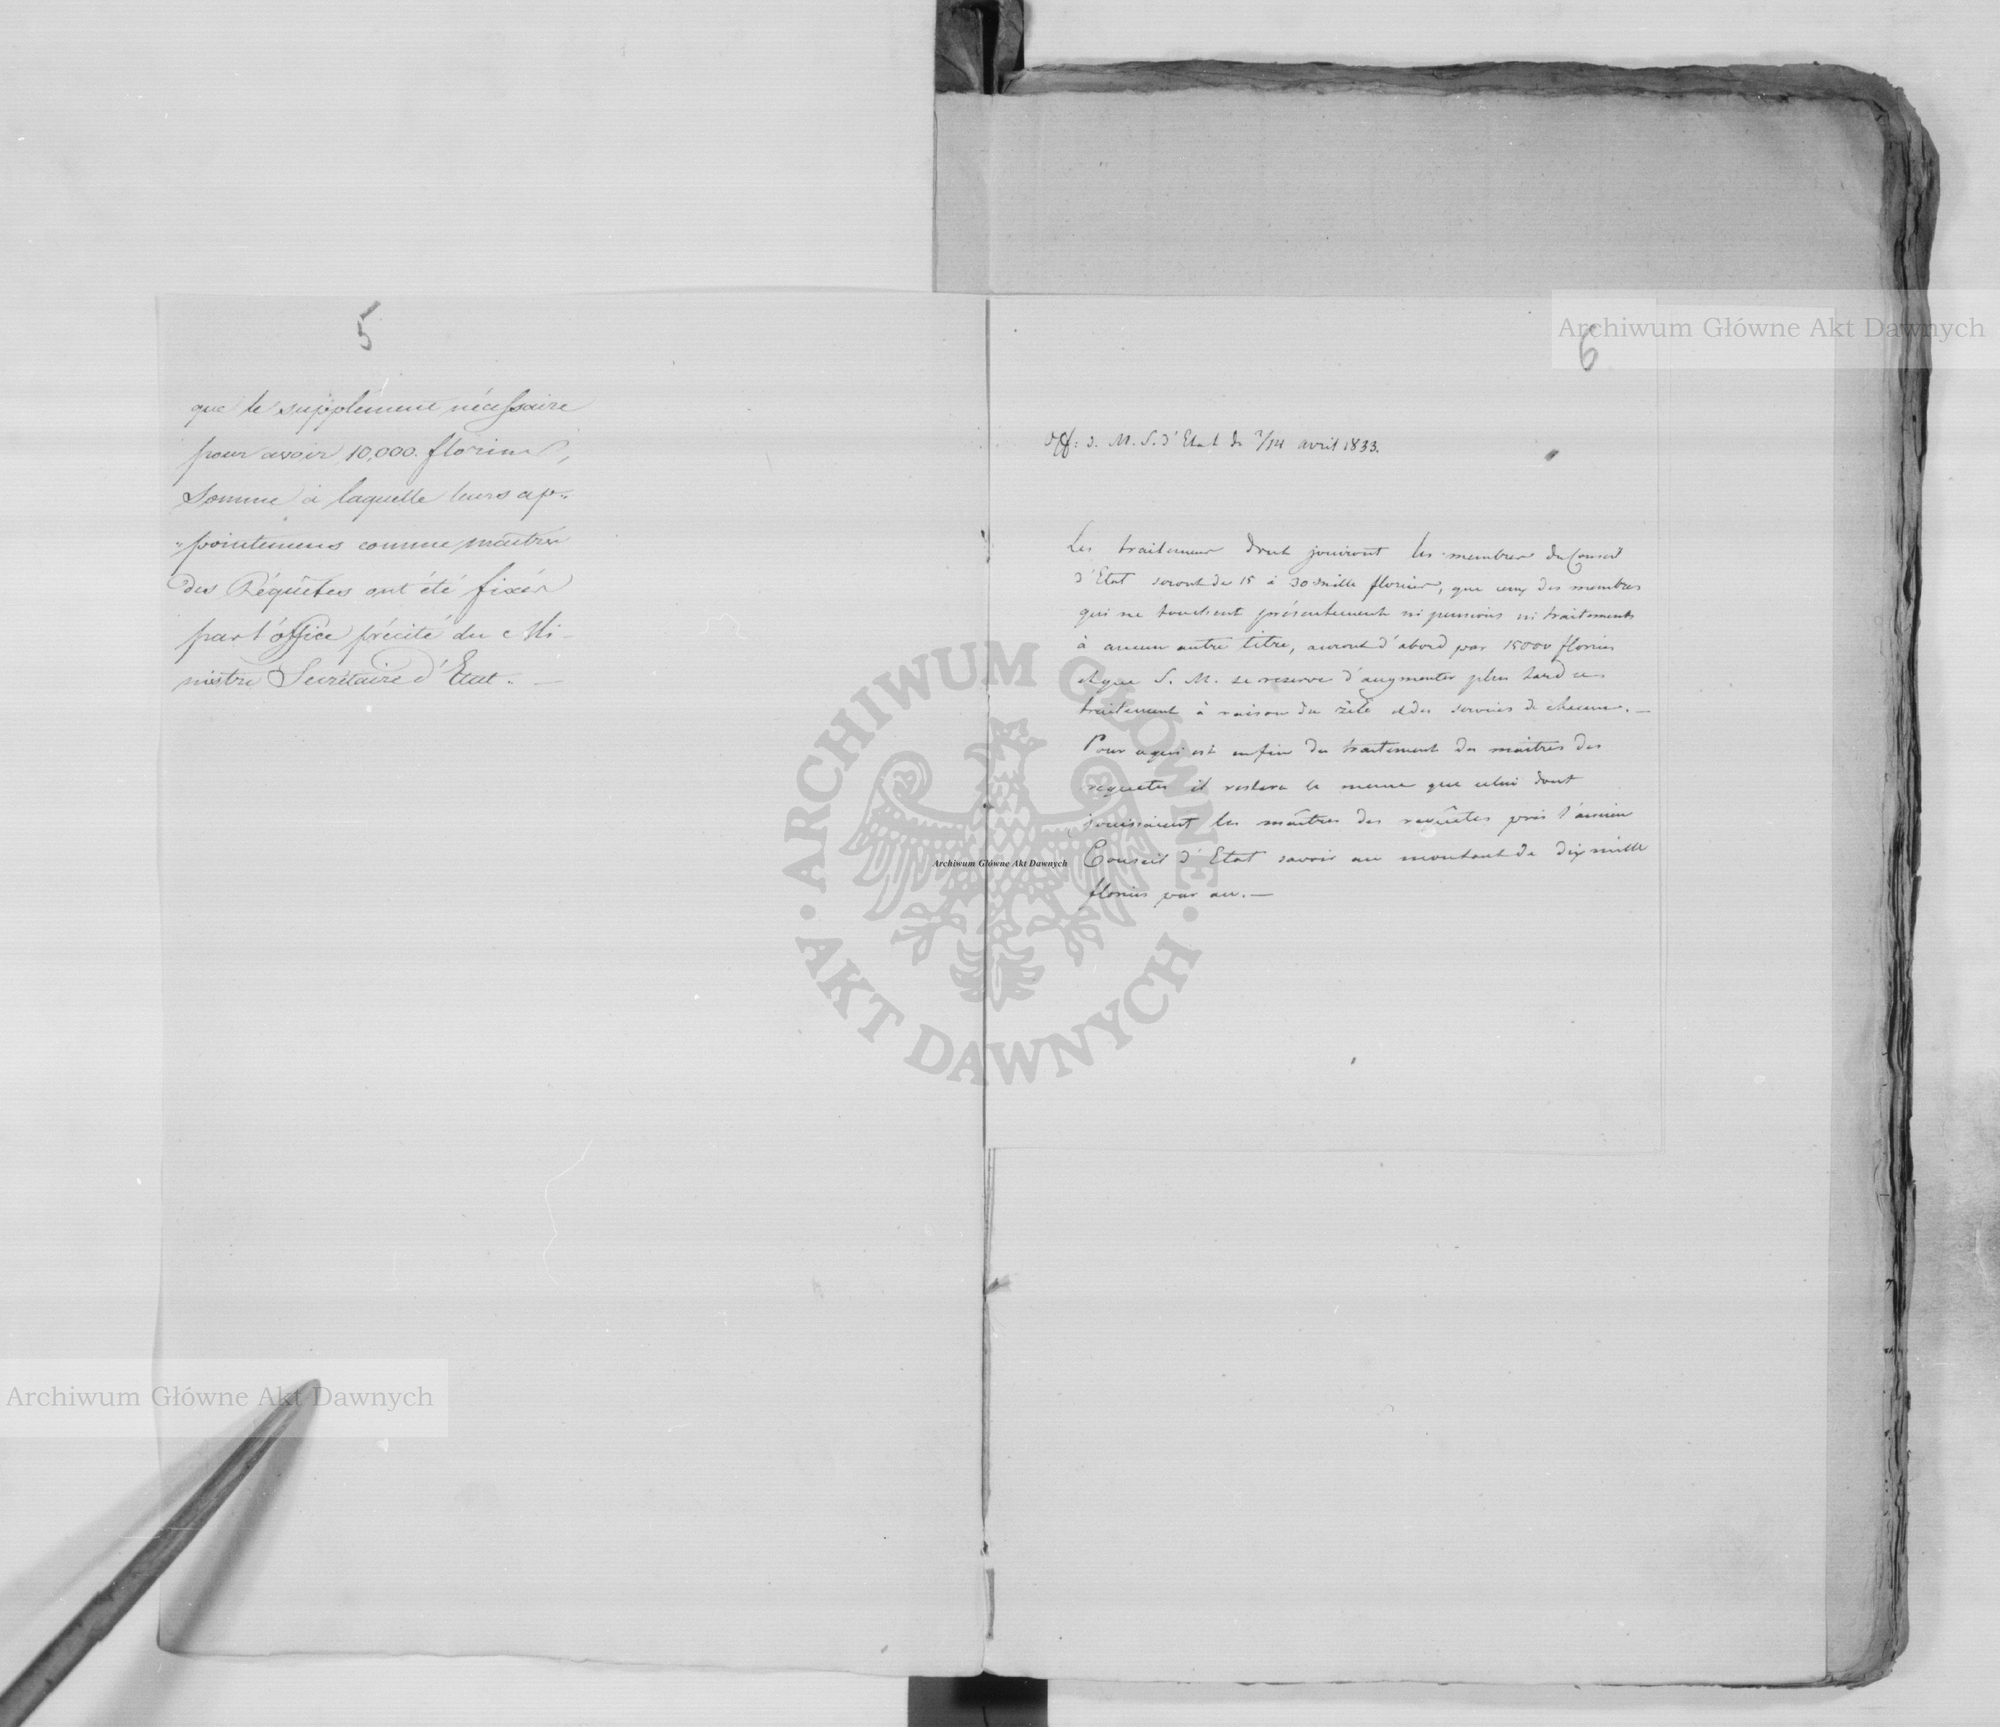 5
que le supplément nécessaire
pour avoir 10,000. florins,
Somme à laquelle leurs ap„
„pointemens comme maitres
des Réquêtes ont été fixés
par l'office précité du Mi-
nistre Secrétaire d'Etat. —
6
off: d. M. S. d'Etat du 2/14 avril 1833.
Les traitemens dont jouiront les membres du Conseil
d'Etat seront de 15 à 30 mille florins, que ceux des membres
qui ne touchent présentement ni pensions ni traitements
à aucun autre titre, auront d'abord par 15000 florins
et que S. M. se reserve d'augmenter plus tard ce
traitement à raison du zèle et des services de chacun. —
Pour ce qui est enfin du traitement des maitres des
requetes il restera le meme que celui dont
jouissaient les maîtres des requêtes près l'ancien
Conseil d'Etat savoir au montant de dix mille
florins par an. —
Archiwum Główne Akt Dawnych
Archiwum Główne Akt Dawnych
Archiwum Główne Akt Dawnych
ARCHIWUM GŁÓWNE
AKT DAWNYCH